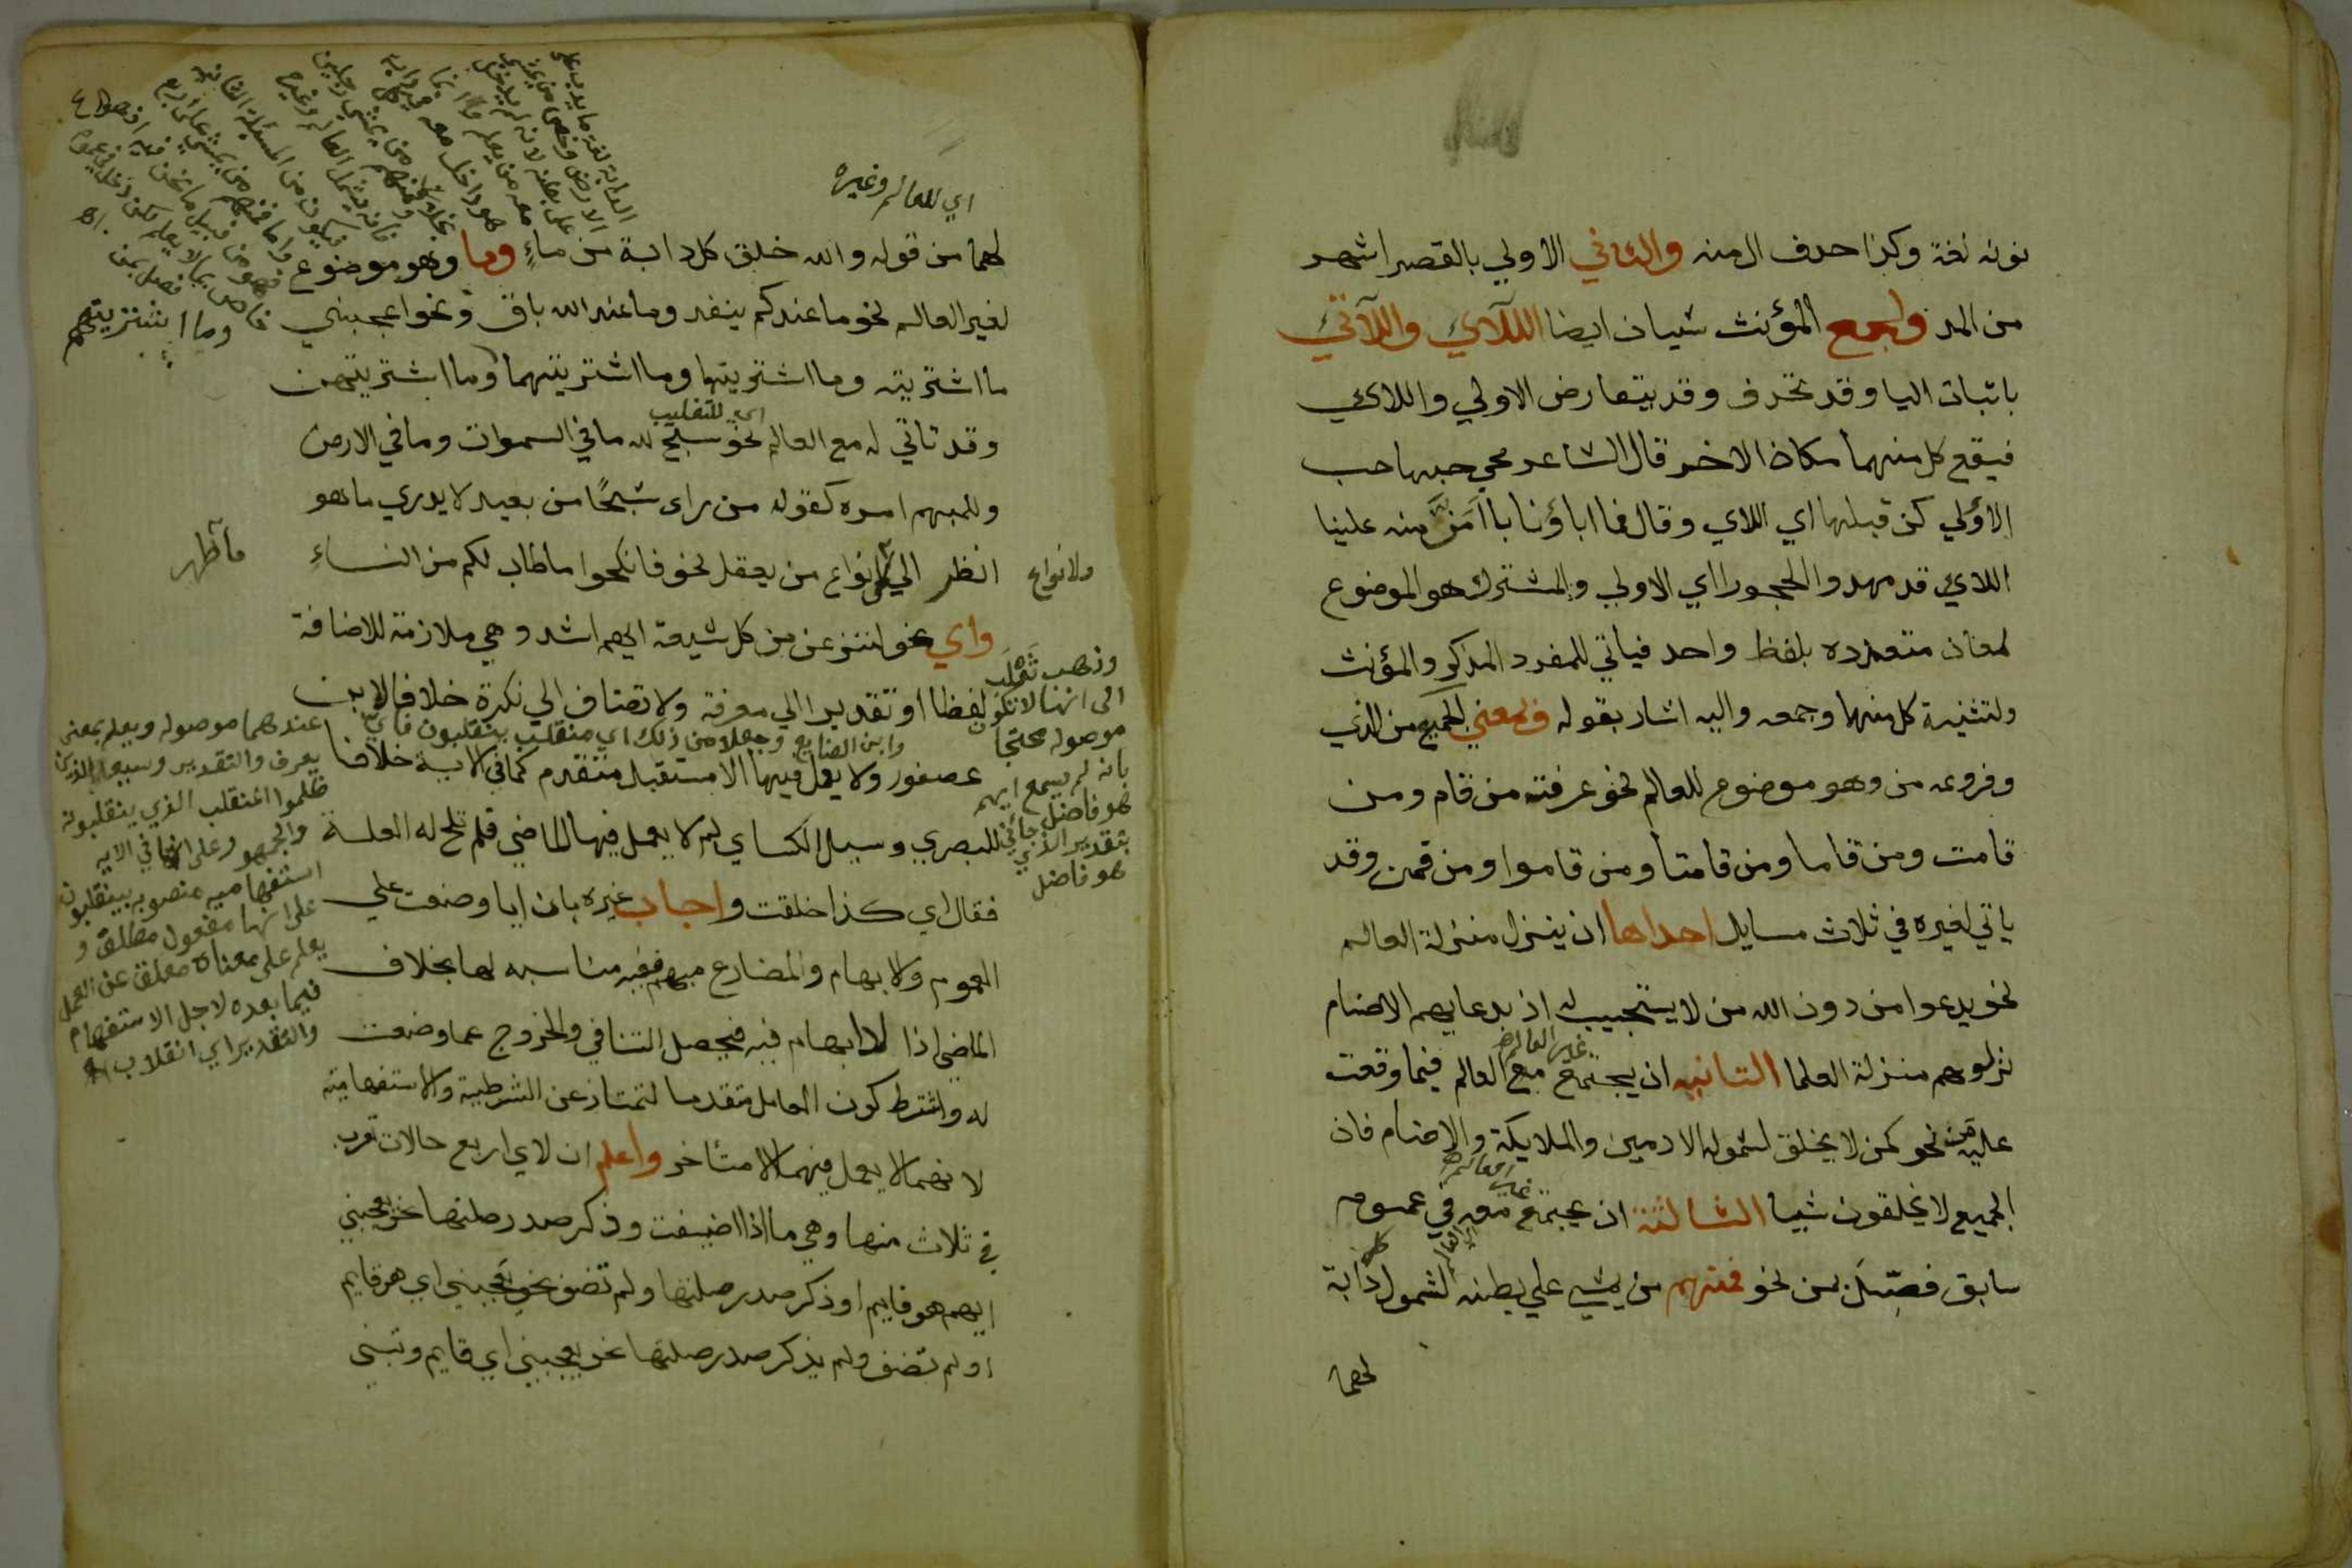 نونه لغة وكذا حدف ال منه والثاني الاولي بالقصر اشهر
من المد ولجمع المؤنث شيان ايضا اللآءي واللآتي
باثبات اليا وقد تحذف وقد يتعارض الاولي واللاي
فيقع كل منهما مكان الاخر قال الشاعر محي حبها حب
الأولي كن قبلها اي اللاي وقال فما اباؤنا باأمنّ منه علينا
اللاي قد مهدوا الحجورا اي الاولي والمشترك هو الموضوع
لمعان متعدده بلفظ واحد فياتي للمفرد المذكر والمؤنث
ولتثنية كل منهما وجمعه واليه اشار بقوله وبمعني الجميع من الذي
وفروعه من وهو موضوع للعالم نحو عرفته من قام ومن
قامت ومن قاما ومن قامتا ومن قاموا ومن قمن وقد
ياتي لغيره في ثلاث مسايل احداها ان ينزل منزلة العالم
نحو يدعوا من دون الله من لا يستجيب له اذ بدعايهم الاصنام
نزلوهم منزلة العلما الثانيه ان يجتمع مع العالم فيما وقعت
غير العالم
عليه من نحو كمن لا يخلق لشموله الادميين والملايكة والاصنام فان
الجميع لا يخلقون شيا الثالثة ان يجتمع معه في عموم
غير العالم
سابق فصّل بمن نحو فمنهم من يمشي علي بطنه لشمول دابة
لهما
اي للعالم وغيره
لهما من قوله والله خلق كل دابة من ماءٍ وما وهو موضوع
لغير العالم نحو ما عندكم ينفد وما عند الله باق ونحو اعجبني
وما اشتريتهم
ما اشتريته وما اشتريتها وما اشتريتهما وما اشتريتهن
اي للتغليب
وقد تاتي له مع العالم نحو سبح لله ما في السموات وما في الارض
وللمبهم امره كقوله من راى شبحًا من بعيد لا يدري ما هو
ولانواع
انظر الي انواع من يعقل نحو فانكحوا ما طاب لكم من النساءِ
ما ظهر
واي نحو لننزعن من كل شيعة ايهم اشد وهي ملازمة للاضافة
لفظا او تقديرا الي معرفة ولا تضاف الي نكرة خلافا لابن
عصفور ولا يعمل فيها الا مستقبل متقدم كما في الاية خلافا
للبصري وسيل الكساي لم لا يعمل فيها الماضي فلم تلح له العلة
فقال اي كذا خلقت واجاب غيره بان ايا وضعت علي
العموم والابهام والمضارع مبهم ففيه مناسبه لها بخلاف
الماضي اذا لا ابهام فيه فيحصل التنافي والخروج عما وضعت
له واشترط كون العامل متقدما لتمتاز عن الشرطية والاستفهامية
لانهما لا يعمل فيهما الا متأخر واعلم ان لاي اربع حالات تعرب
في ثلاث منها وهي ما اذا اضيفت وذكر صدر صلتها نحو يعجبني
ايهم هو قايم او ذكر صدر صلتها ولم تضف نحو يعجبني اي هو قايم
او لم تضف ولم يذكر صدر صلتها نحو يعجبني اي قايم وتبني
وذهب ثعلب
الى انها لا تكون
موصوله محتجا
بانه لم يسمع ايهم
هو فاضل جاءني
بتقدير الذي
هو فاضل
وابن الضايع وجعلا من ذلك اي منقلب ينقلبون فاي
عندهما موصوله ويعلم بمعنى
يعرف والتقدير وسيعلم الذين
ظلموا المنقلب الذي ينقلبونه
والجمهور وعلى انها في الايه
استفهاميه منصوبه بينقلبون
على انها مفعول مطلق و
يعلم على معناه معلق عن العمل
فيما بعده لاجل الاستفهام
والتقدير اي انقلاب